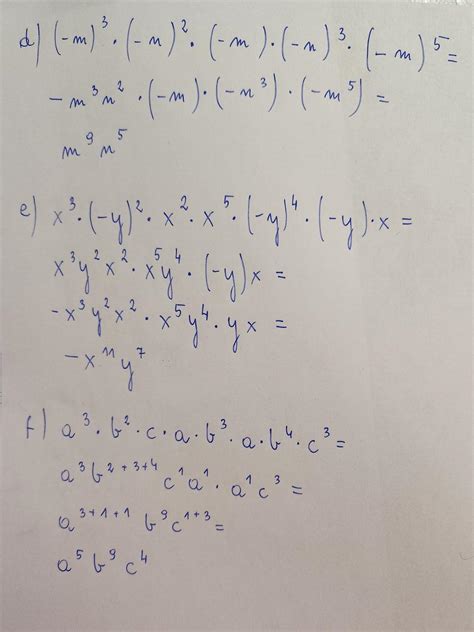 d) (-m)³ · (-n)² · (-m) · (-n)³ · (-m)⁵ =
-m³n² · (-m) · (-n³) · (-m⁵) =
m⁹n⁵
e) x³ · (-y)² · x² · x⁵ · (-y)⁴ · (-y) · x =
x³y²x² · x⁵y⁴ · (-y)x =
-x³y²x² · x⁵y⁴ · yx =
-x¹¹y⁷
f) a³ · b² · c · a · b³ · a · b⁴ · c³ =
a³b²⁺³⁺⁴ c¹a¹ · a¹c³ =
a³⁺¹⁺¹ b⁹c¹⁺³ =
a⁵b⁹c⁴